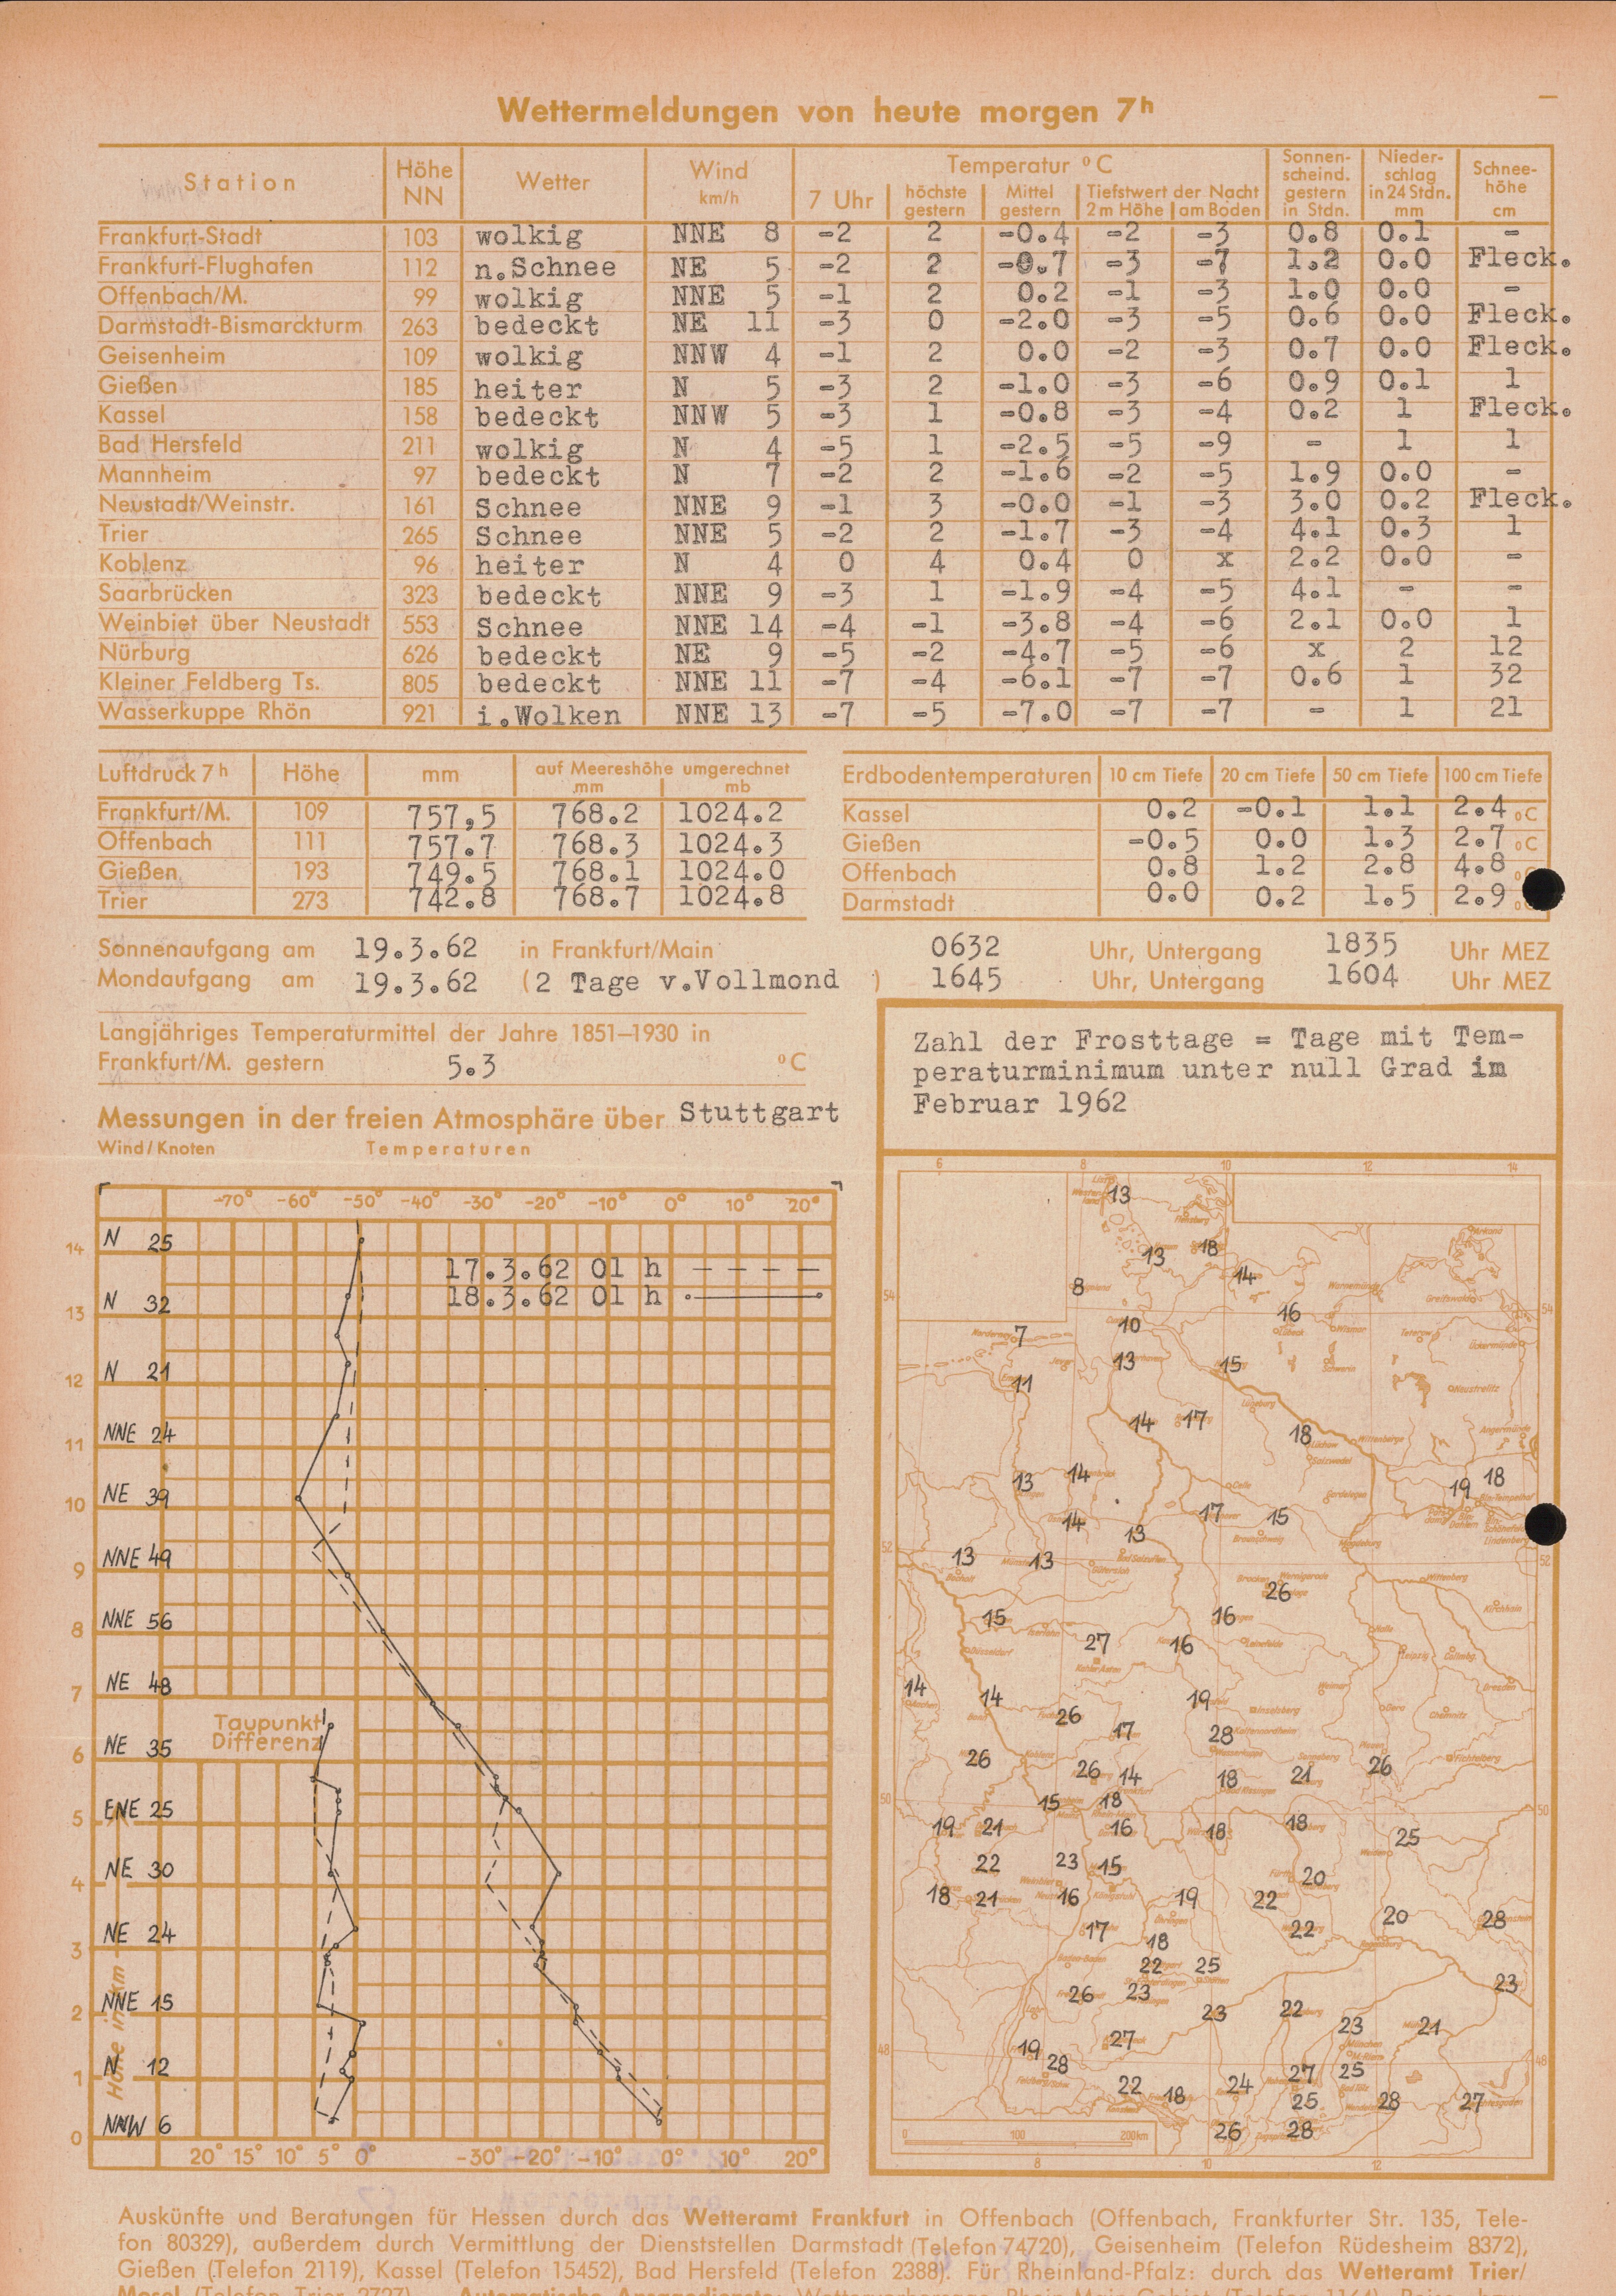 Wettermeldungen von heute morgen 7h
Station Höhe NN Wetter Wind km/h Temperatur °C Sonnenscheind. gestern in Stdn. Niederschlag in 24 Stdn. mm Schneehöhe cm
7 Uhr höchste gestern Mittel gestern Tiefstwert der Nacht 2 m Höhe am Boden
Frankfurt-Stadt 103 wolkig NNE 8 -2 2 -0.4 -2 -3 0.8 0.1 -
Frankfurt-Flughafen 112 n.Schnee NE 5 -2 2 -0.7 -3 -7 1.2 0.0 Fleck.
Offenbach/M. 99 wolkig NNE 5 -1 2 0.2 -1 -3 1.0 0.0 -
Darmstadt-Bismarckturm 263 bedeckt NE 11 -3 0 -2.0 -3 -5 0.6 0.0 Fleck.
Geisenheim 109 wolkig NNW 4 -1 2 0.0 -2 -3 0.7 0.0 Fleck.
Gießen 185 heiter N 5 -3 2 -1.0 -3 -6 0.9 0.1 1
Kassel 158 bedeckt NNW 5 -3 1 -0.8 -3 -4 0.2 1 Fleck.
Bad Hersfeld 211 wolkig N 4 -5 1 -2.5 -5 -9 - 1 1
Mannheim 97 bedeckt N 7 -2 2 -1.6 -2 -5 1.9 0.0 -
Neustadt/Weinstr. 161 Schnee NNE 9 -1 3 -0.0 -1 -3 3.0 0.2 Fleck.
Trier 265 Schnee NNE 5 -2 2 -1.7 -3 -4 4.1 0.3 1
Koblenz 96 heiter N 4 0 4 0.4 0 x 2.2 0.0 -
Saarbrücken 323 bedeckt NNE 9 -3 1 -1.9 -4 -5 4.1 - -
Weinbiet über Neustadt 553 Schnee NNE 14 -4 -1 -3.8 -4 -6 2.1 0.0 1
Nürburg 626 bedeckt NE 9 -5 -2 -4.7 -5 -6 x 2 12
Kleiner Feldberg Ts. 805 bedeckt NNE 11 -7 -4 -6.1 -7 -7 0.6 1 32
Wasserkuppe Rhön 921 i.Wolken NNE 13 -7 -5 -7.0 -7 -7 - 1 21
Luftdruck 7h Höhe mm auf Meereshöhe umgerechnet mm mb
Frankfurt/M. 109 757,5 768.2 1024.2
Offenbach 111 757.7 768.3 1024.3
Gießen 193 749.5 768.1 1024.0
Trier 273 742.8 768.7 1024.8
Erdbodentemperaturen 10 cm Tiefe 20 cm Tiefe 50 cm Tiefe 100 cm Tiefe
Kassel 0.2 -0.1 1.1 2.4 °C
Gießen -0.5 0.0 1.3 2.7 °C
Offenbach 0.8 1.2 2.8 4.8
Darmstadt 0.0 0.2 1.5 2.9
Sonnenaufgang am 19.3.62 in Frankfurt/Main 0632 Uhr, Untergang 1835 Uhr MEZ
Mondaufgang am 19.3.62 (2 Tage v.Vollmond ) 1645 Uhr, Untergang 1604 Uhr MEZ
Langjähriges Temperaturmittel der Jahre 1851–1930 in
Frankfurt/M. gestern 5.3 °C
Messungen in der freien Atmosphäre über Stuttgart
Wind/Knoten Temperaturen
-70° -60° -50° -40° -30° -20° -10° 0° 10° 20°
14 N 25
17.3.62 01 h
18.3.62 01 h
13 N 32
12 N 21
11 NNE 24
10 NE 39
9 NNE 49
8 NNE 56
7 NE 48
Taupunkt
Differenz
6 NE 35
5 ENE 25
4 NE 30
3 NE 24
2 NNE 15
1 N 12
0 NNW 6
Höhe in km
20° 15° 10° 5° 0° -30° -20° -10° 0° 10° 20°
Zahl der Frosttage = Tage mit Tem-
peraturminimum unter null Grad im
Februar 1962
6 8 10 12 14
13
13 18
8 14
54 16 54
7 10
13 15
11
14 17 18
13 14 19 18
14 13 17 15
52 13 13 52
26
15 16
27 16
14 14 19
26 17 28
26 26 14 18 21 26
50 15 18 50
19 21 16 18 18 25
22 23 15 20
18 21 16 19 22
17 18 22 20 28
22 25
26 23 23
23 22 23 21
19 28 27
48 27 25 48
22 18 24 25 28 27
26 28
0 100 200km
8 10 12
Auskünfte und Beratungen für Hessen durch das Wetteramt Frankfurt in Offenbach (Offenbach, Frankfurter Str. 135, Tele-
fon 80329), außerdem durch Vermittlung der Dienststellen Darmstadt (Telefon 74720), Geisenheim (Telefon Rüdesheim 8372),
Gießen (Telefon 2119), Kassel (Telefon 15452), Bad Hersfeld (Telefon 2388). Für Rheinland-Pfalz: durch das Wetteramt Trier/